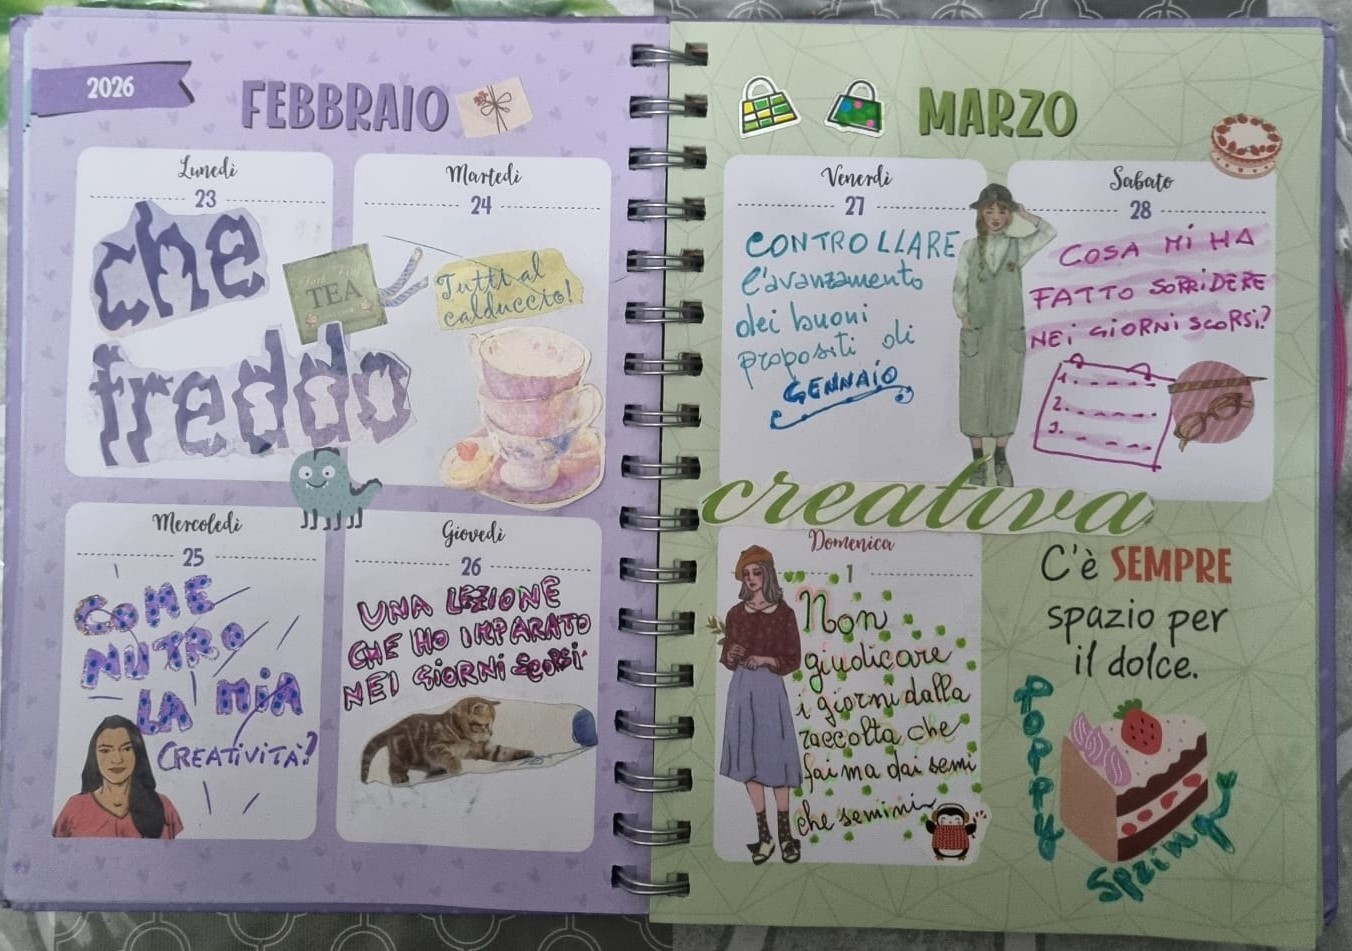 2026
FEBBRAIO
Lunedì
23
che
freddo
TEA
Martedì
24
Tutti al
calduccio!
Mercoledì
25
COME
NUTRO
LA MIA
CREATIVITÀ?
Giovedì
26
UNA LEZIONE
CHE HO IMPARATO
NEI GIORNI SCORSI
MARZO
Venerdì
27
CONTROLLARE
l'avanzamento
dei buoni
propositi di
GENNAIO
Sabato
28
COSA MI HA
FATTO SORRIDERE
NEI GIORNI SCORSI?
1.
2.
3.
creativa
Domenica
1
Non
giudicare
i giorni dalla
raccolta che
fai ma dai semi
che semini
C'è SEMPRE
spazio per
il dolce.
POPPY
Spring